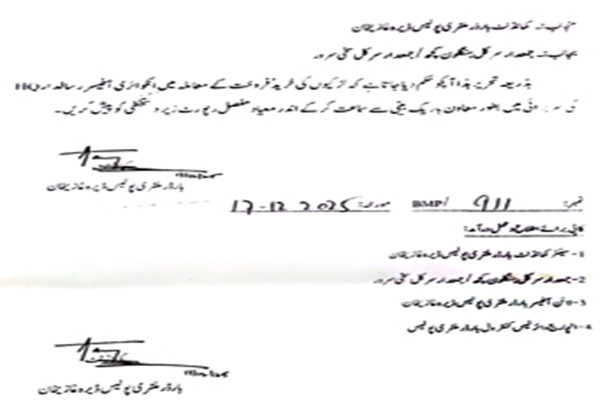 منجانب:۔ کمانڈنٹ بارڈر ملٹری پولیس ڈیرہ غازیخان
بجانب:۔ جمعدار سرکل ہنگلون کچھ / جمعدار سرکل سخی سرور
بذریعہ تحریر ہذا آپکو حکم دیا جاتا ہے کہ لڑکیوں کی خرید فروخت کے معاملہ میں انکوائری آفیسر رسالدار HQ
کی سربراہی میں بطور معاون باریک بینی سے سماعت کر کے اندر میعاد مفصل رپورٹ زیر دستخطی کو پیش کریں۔
بارڈر ملٹری پولیس ڈیرہ غازیخان
نمبر: 911 /BMP مورخہ: 17-12-2025
کاپی برائے اطلاع و عمل درآمد:
1- سینئر کمانڈنٹ بارڈر ملٹری پولیس ڈیرہ غازیخان
2- جمعدار سرکل ہنگلون کچھ / جمعدار سرکل سخی سرور
3- لائن آفیسر بارڈر ملٹری پولیس ڈیرہ غازیخان
4- انچارج وائرلیس کنٹرول بارڈر ملٹری پولیس
بارڈر ملٹری پولیس ڈیرہ غازیخان